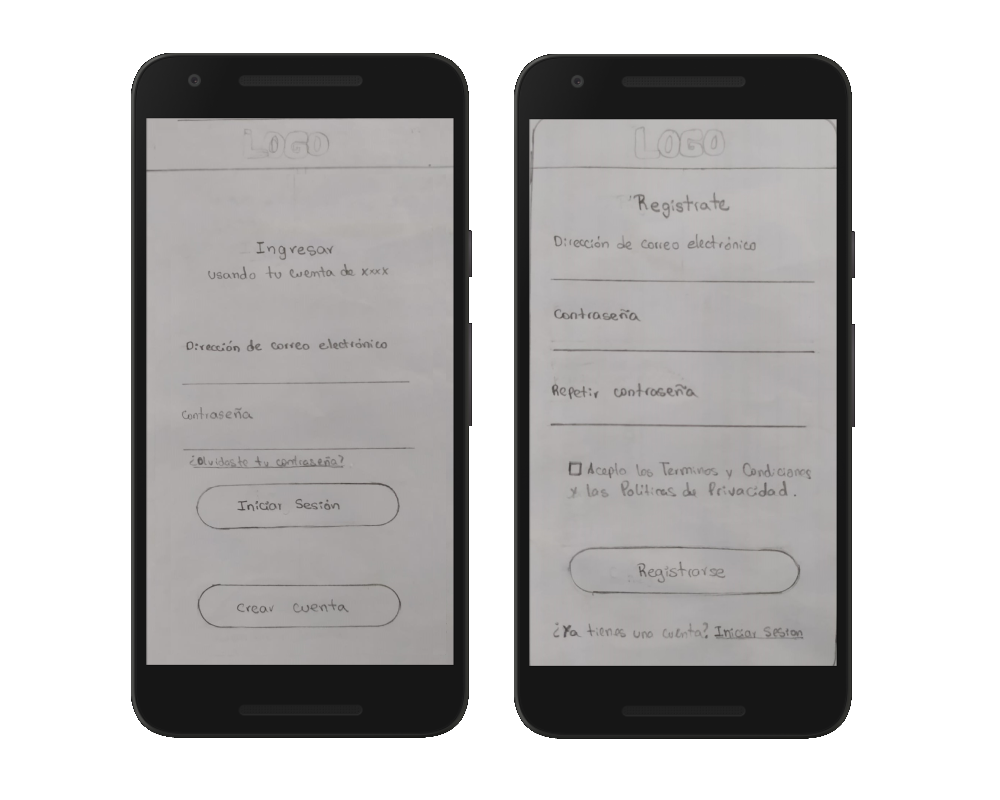 LOGO
Ingresar
usando tu cuenta de xxxx
Dirección de correo electrónico
Contraseña
¿Olvidaste tu contraseña?
Iniciar Sesión
Crear cuenta
LOGO
Registrate
Dirección de correo electrónico
Contraseña
Repetir contraseña
Acepto los Terminos y Condiciones
y las Políticas de Privacidad.
Registrarse
¿Ya tienes una cuenta? Iniciar Sesion